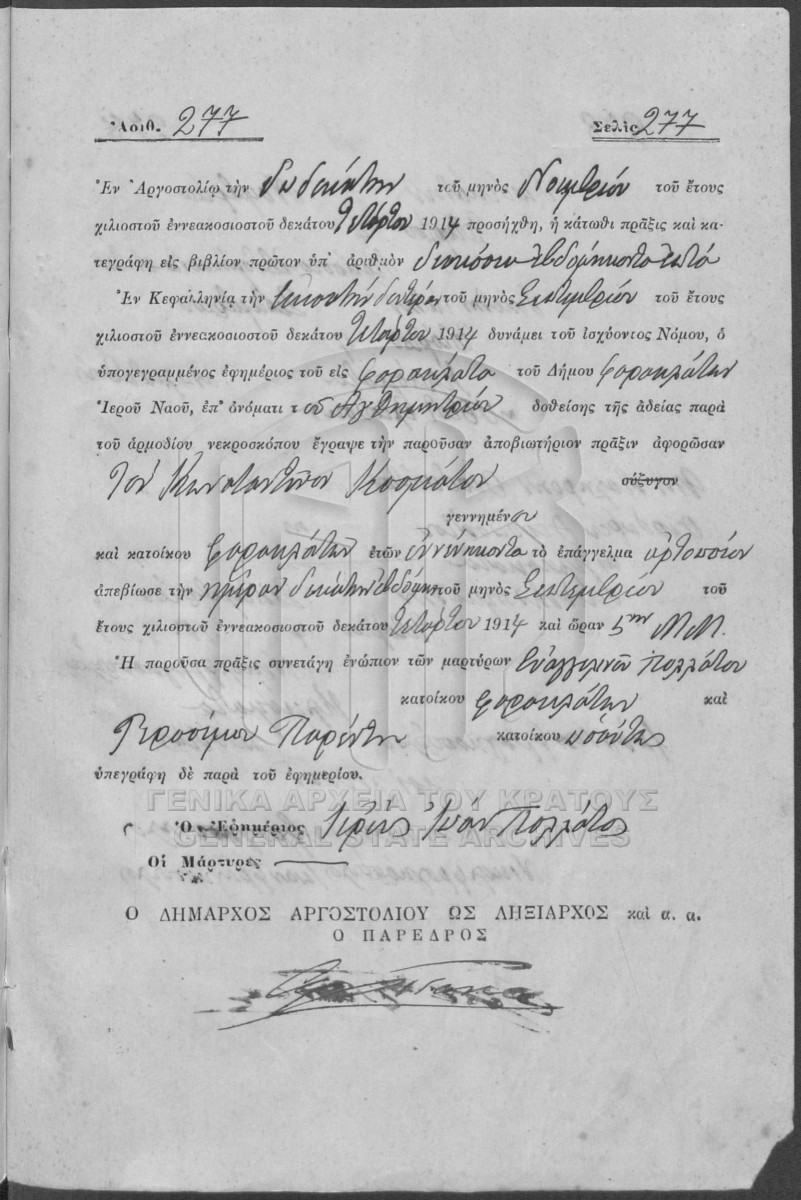 Ἀριθ. 277 Σελὶς 277
Ἐν Ἀργοστολίῳ τὴν δωδεκάτην τοῦ μηνὸς Νοεμβρίου τοῦ ἔτους
χιλιοστοῦ ἐννεακοσιοστοῦ δεκάτου Τετάρτου 1914 προσήχθη, ἡ κάτωθι πρᾶξις καὶ κα-
τεγράφη εἰς βιβλίον πρῶτον ὑπ' ἀριθμὸν διακόσια ἑβδομήκοντα ἑπτά
Ἐν Κεφαλληνίᾳ τὴν εἰκοστὴν δευτέραν τοῦ μηνὸς Σεπτεμβρίου τοῦ ἔτους
χιλιοστοῦ ἐννεακοσιοστοῦ δεκάτου Τετάρτου 1914 δυνάμει τοῦ ἰσχύοντος Νόμου, ὁ
ὑπογεγραμμένος ἐφημέριος τοῦ εἰς Φαρακλάτα τοῦ Δήμου Φαρακλάτων
Ἱεροῦ Ναοῦ, ἐπ' ὀνόματι τοῦ Αγ Δημητρίου δοθείσης τῆς ἀδείας παρὰ
τοῦ ἁρμοδίου νεκροσκόπου ἔγραψε τὴν παροῦσαν ἀποβιωτήριον πρᾶξιν ἀφορῶσαν
Τον Κωνσταντῖνον Κοσμάτον σύζυγον
γεννημένου
καὶ κατοίκου Φαρακλάτων ἐτῶν ἐννενήκοντα τὸ ἐπάγγελμα ἀρτοποιοῦ
ἀπεβίωσε τὴν ἡμέραν δεκάτην ἑβδόμην τοῦ μηνὸς Σεπτεμβρίου τοῦ
ἔτους χιλιοστοῦ ἐννεακοσιοστοῦ δεκάτου Τετάρτου 1914 καὶ ὥραν 5ην Μ.Μ.
Ἡ παροῦσα πρᾶξις συνετάγη ἐνώπιον τῶν μαρτύρων Εὐαγγελινοῦ Πολλάτου
κατοίκου Φαρακλάτων καὶ
Γερασίμου κατοίκου ὡσαύτως
ὑπεγράφη δὲ παρὰ τοῦ ἐφημερίου.
ΓΕΝΙΚΑ ΑΡΧΕΙΑ ΤΟΥ ΚΡΑΤΟΥΣ
Ὁ Ἐφημέριος Ἱερεὺς Ἰωάν Πολλάτος
GENERAL STATE ARCHIVES
Οἱ Μάρτυρες
Ο ΔΗΜΑΡΧΟΣ ΑΡΓΟΣΤΟΛΙΟΥ ΩΣ ΛΗΞΙΑΡΧΟΣ καὶ α. α.
Ο ΠΑΡΕΔΡΟΣ